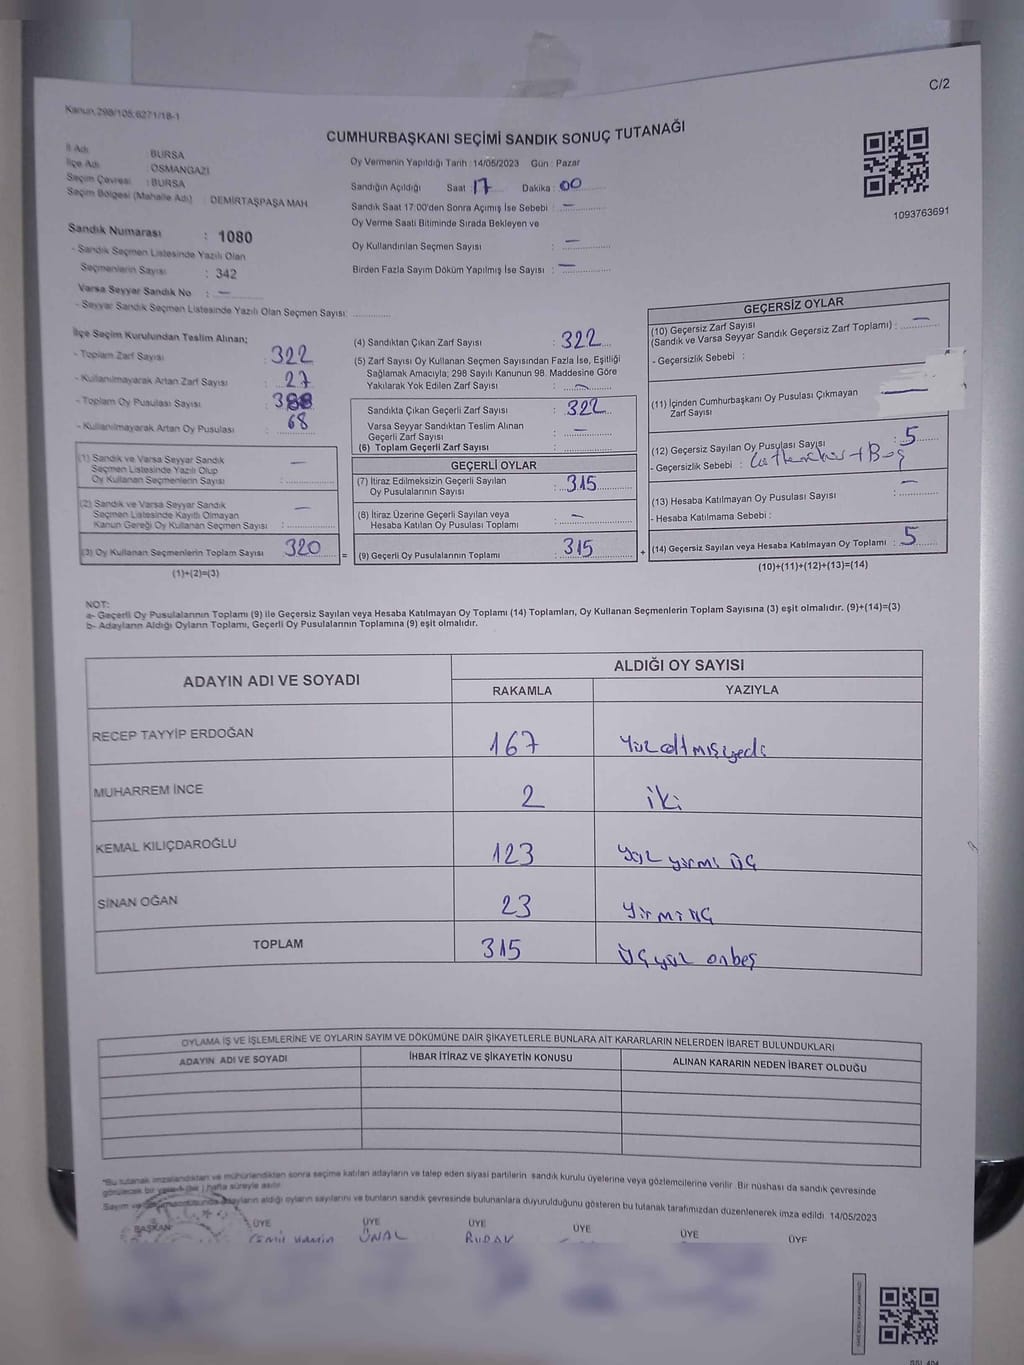 C/2
Kanun.298/105.6271/18-1
CUMHURBAŞKANI SEÇİMİ SANDIK SONUÇ TUTANAĞI
İl Adı : BURSA
İlçe Adı : OSMANGAZİ
Seçim Çevresi : BURSA
Seçim Bölgesi (Mahalle Adı) : DEMİRTAŞPAŞA MAH
Oy Vermenin Yapıldığı Tarih : 14/05/2023 Gün : Pazar
Sandığın Açıldığı Saat : 17 Dakika : 00
Sandık Saat 17:00'den Sonra Açımış İse Sebebi : —
Oy Verme Saati Bitiminde Sırada Bekleyen ve
Oy Kullandırılan Seçmen Sayısı : —
Birden Fazla Sayım Döküm Yapılmış İse Sayısı : —
1093763691
Sandık Numarası : 1080
- Sandık Seçmen Listesinde Yazılı Olan
Seçmenlerin Sayısı : 342
Varsa Seyyar Sandık No : —
- Seyyar Sandık Seçmen Listesinde Yazılı Olan Seçmen Sayısı:
İlçe Seçim Kurulundan Teslim Alınan;
- Toplam Zarf Sayısı : 322
- Kullanılmayarak Artan Zarf Sayısı : 27
- Toplam Oy Pusulası Sayısı : 388
- Kullanılmayarak Artan Oy Pusulası : 68
(1) Sandık ve Varsa Seyyar Sandık
Seçmen Listesinde Yazılı Olup
Oy Kullanan Seçmenlerin Sayısı : —
(2) Sandık ve Varsa Seyyar Sandık
Seçmen Listesinde Kayıtlı Olmayan
Kanun Gereği Oy Kullanan Seçmen Sayısı : —
(3) Oy Kullanan Seçmenlerin Toplam Sayısı : 320
(1)+(2)=(3)
(4) Sandıktan Çıkan Zarf Sayısı : 322
(5) Zarf Sayısı Oy Kullanan Seçmen Sayısından Fazla İse, Eşitliği
Sağlamak Amacıyla; 298 Sayılı Kanunun 98. Maddesine Göre
Yakılarak Yok Edilen Zarf Sayısı : —
Sandıkta Çıkan Geçerli Zarf Sayısı : 322
Varsa Seyyar Sandıktan Teslim Alınan
Geçerli Zarf Sayısı : —
(6) Toplam Geçerli Zarf Sayısı
GEÇERLİ OYLAR
(7) İtiraz Edilmeksizin Geçerli Sayılan
Oy Pusulalarının Sayısı : 315
(8) İtiraz Üzerine Geçerli Sayılan veya
Hesaba Katılan Oy Pusulası Toplamı : —
= (9) Geçerli Oy Pusulalarının Toplamı : 315
GEÇERSİZ OYLAR
(10) Geçersiz Zarf Sayısı
(Sandık ve Varsa Seyyar Sandık Geçersiz Zarf Toplamı) : —
- Geçersizlik Sebebi :
(11) İçinden Cumhurbaşkanı Oy Pusulası Çıkmayan
Zarf Sayısı —
(12) Geçersiz Sayılan Oy Pusulası Sayısı : 5
- Geçersizlik Sebebi :
(13) Hesaba Katılmayan Oy Pusulası Sayısı : —
- Hesaba Katılmama Sebebi :
+ (14) Geçersiz Sayılan veya Hesaba Katılmayan Oy Toplamı : 5
(10)+(11)+(12)+(13)=(14)
NOT:
a- Geçerli Oy Pusulalarının Toplamı (9) ile Geçersiz Sayılan veya Hesaba Katılmayan Oy Toplamı (14) Toplamları, Oy Kullanan Seçmenlerin Toplam Sayısına (3) eşit olmalıdır. (9)+(14)=(3)
b- Adayların Aldığı Oyların Toplamı, Geçerli Oy Pusulalarının Toplamına (9) eşit olmalıdır.
ADAYIN ADI VE SOYADI ALDIĞI OY SAYISI
RAKAMLA YAZIYLA
RECEP TAYYİP ERDOĞAN 167 Yüz altmış yedi
MUHARREM İNCE 2 iki
KEMAL KILIÇDAROĞLU 123 Yüz yirmi üç
SİNAN OĞAN 23 Yirmi üç
TOPLAM 315 Üçyüz onbeş
OYLAMA İŞ VE İŞLEMLERİNE VE OYLARIN SAYIM VE DÖKÜMÜNE DAİR ŞİKAYETLERLE BUNLARA AİT KARARLARIN NELERDEN İBARET BULUNDUKLARI
ADAYIN ADI VE SOYADI İHBAR İTİRAZ VE ŞİKAYETİN KONUSU ALINAN KARARIN NEDEN İBARET OLDUĞU
"Bu tutanak imzalandıktan ve mühürlendikten sonra seçime katılan adayların ve talep eden siyasi partilerin sandık kurulu üyelerine veya gözlemcilerine verilir. Bir nüshası da sandık çevresinde
görülecek bir yere (1) hafta süreyle asılır.
Sayım ve adayların aldığı oyların sayılarını ve bunların sandık çevresinde bulunanlara duyurulduğunu gösteren bu tutanak tarafımızdan düzenlenerek imza edildi. 14/05/2023
BAŞKAN ÜYE ÜYE ÜYE ÜYE ÜYE ÜYE
ÜNAL